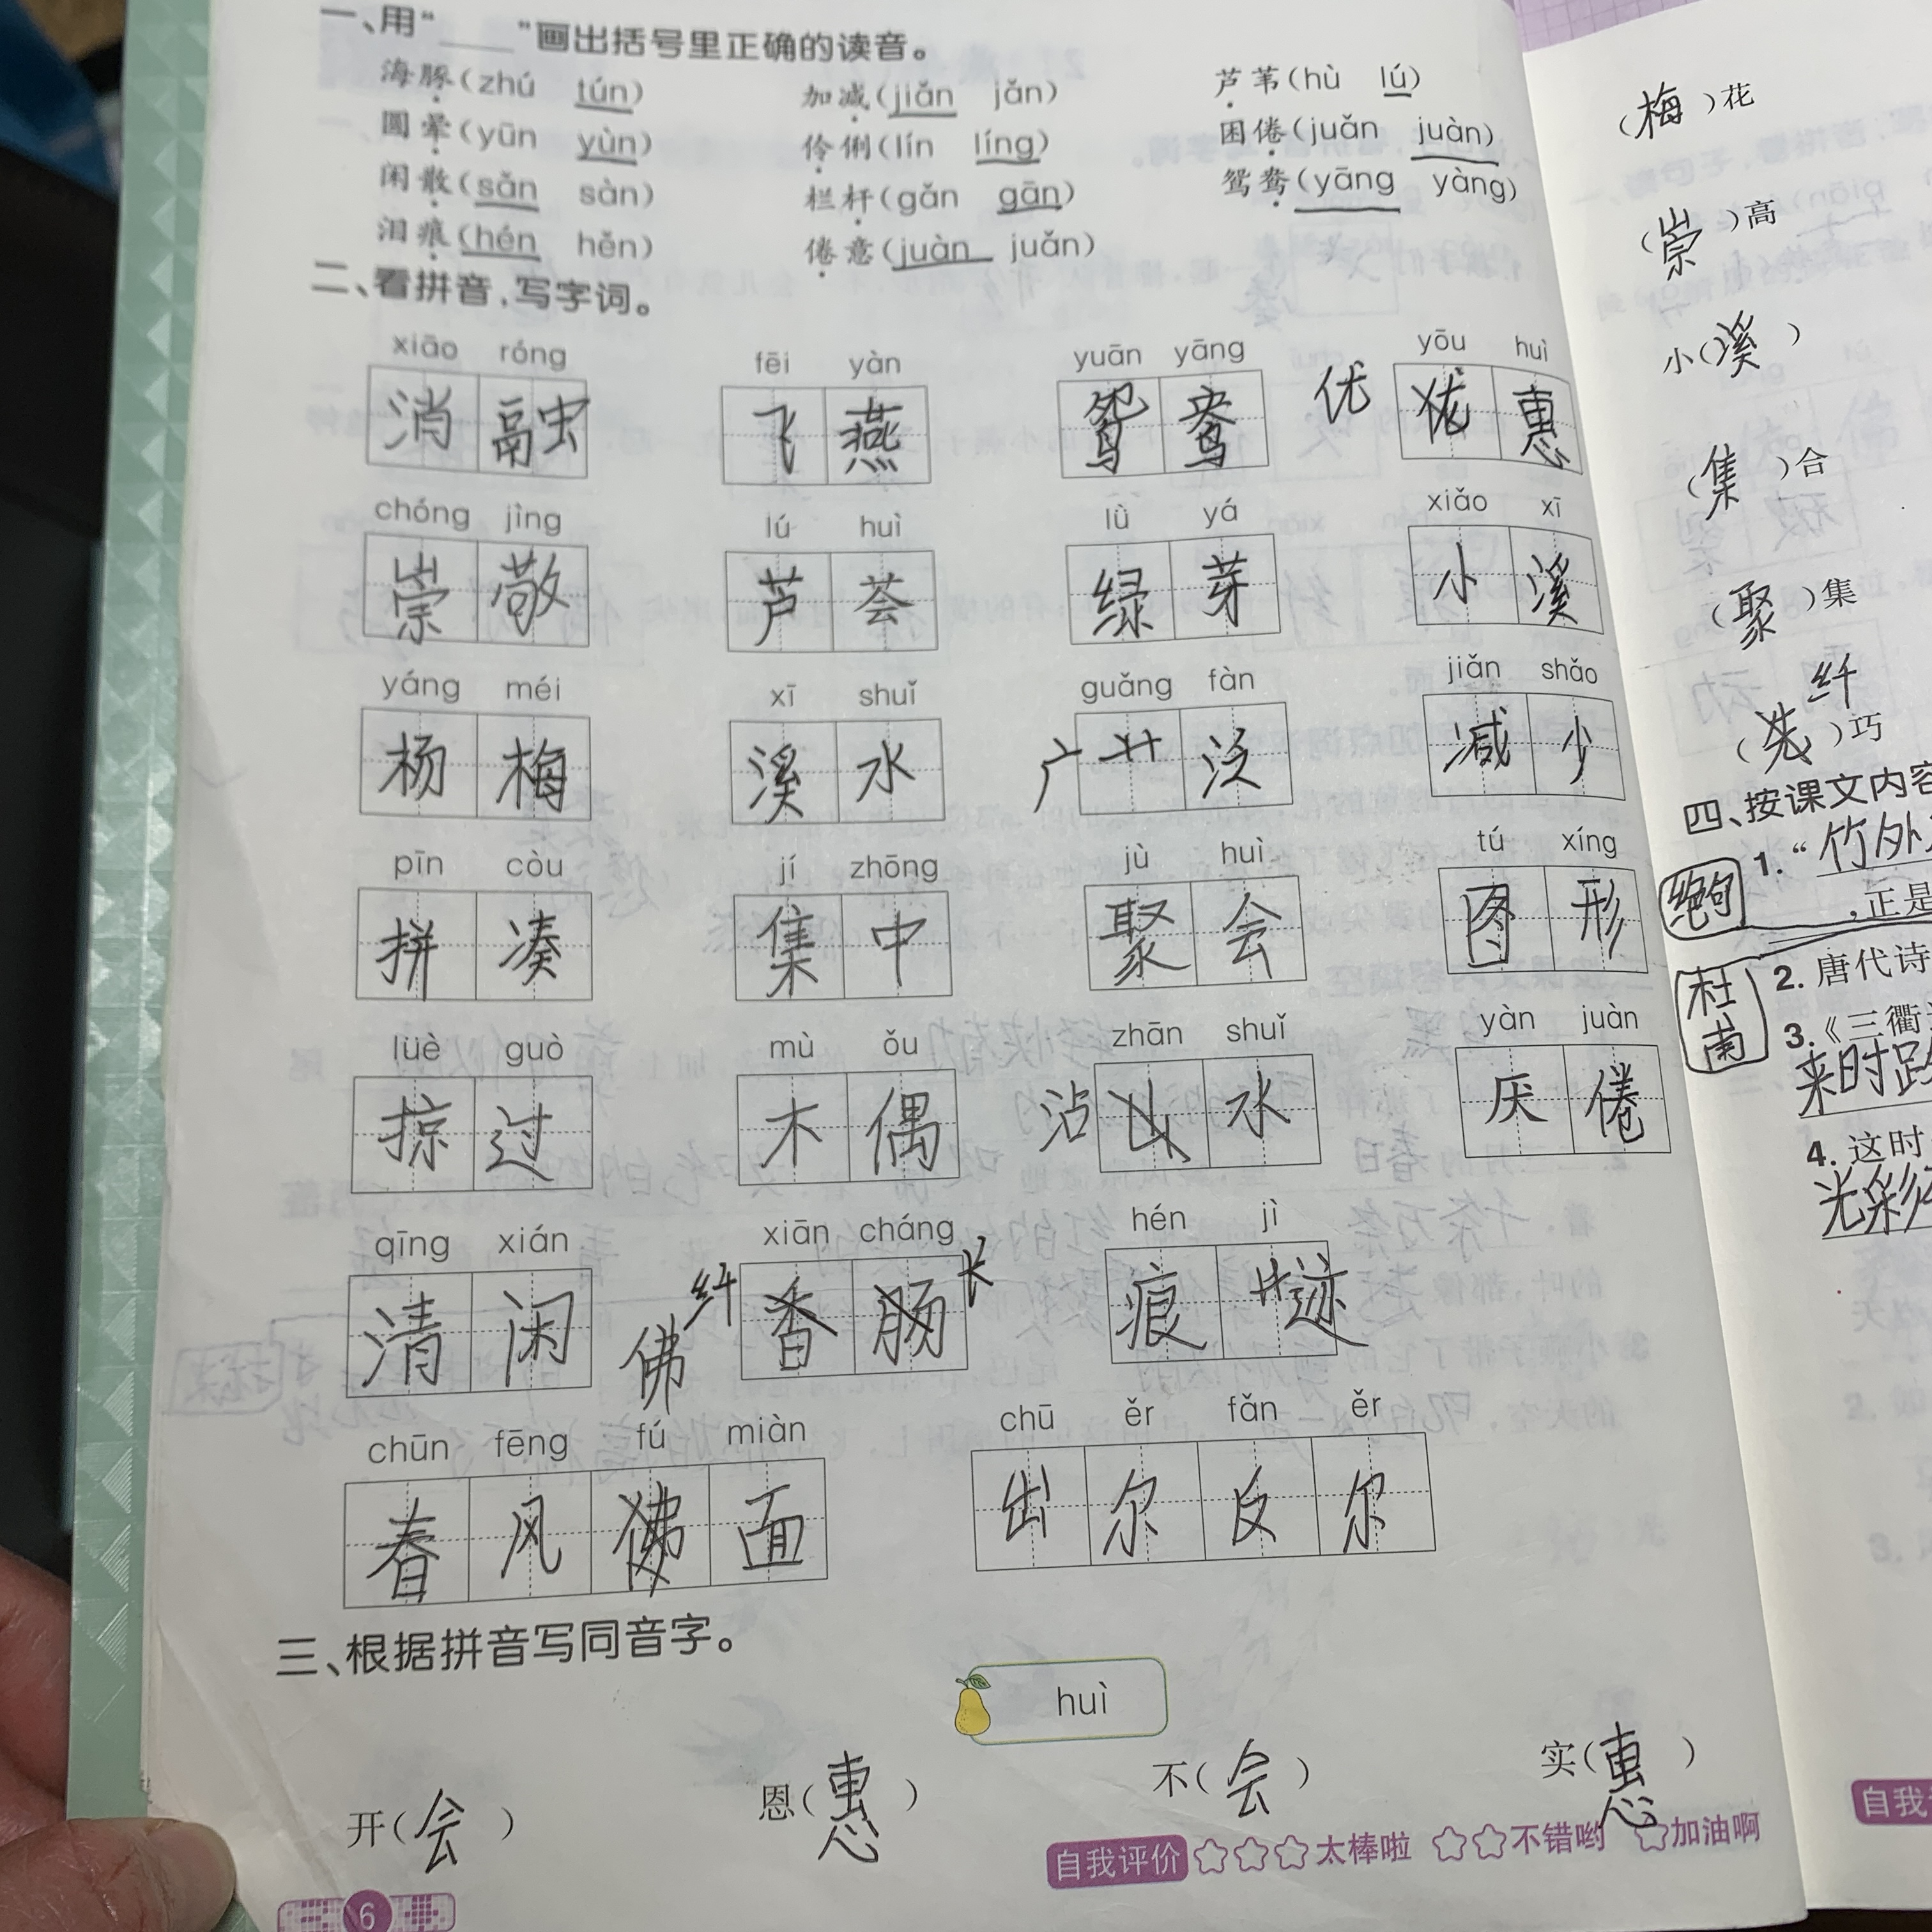 一、用“____”画出括号里正确的读音。
海豚(zhú tún) 加减(jiǎn jǎn) 芦苇(hù lú)
圆晕(yūn yùn) 伶俐(lín líng) 困倦(juǎn juàn)
闲散(sǎn sàn) 栏杆(gǎn gān) 鸳鸯(yāng yàng)
泪痕(hén hěn) 倦意(juàn juǎn)
二、看拼音,写字词。
xiāo róng fēi yàn yuān yāng yōu huì
消融 飞燕 鸳鸯 优 犹惠
chóng jìng lú huì lǜ yá xiǎo xī
崇敬 芦荟 绿芽 小溪
yáng méi xī shuǐ guǎng fàn jiǎn shǎo
杨梅 溪水 广 泛 减少
pīn còu jí zhōng jù huì tú xíng
拼凑 集中 聚会 图形
lüè guò mù ǒu zhān shuǐ yàn juàn
掠过 木偶 沾 水 厌倦
qīng xián xiān cháng hén jì
清闲 纤 香肠 长 痕 迹
佛
chūn fēng fú miàn chū ěr fǎn ěr
春风 面 出尔反尔
三、根据拼音写同音字。
huì
开(会) 恩(惠) 不(会) 实(惠)
自我评价 太棒啦 不错哟 加油啊
6
(梅)花
(崇)高
小(溪)
(集)合
(聚)集
纤
( )巧
四、按课文内容
1. “竹外
绝句 ,正是
2. 唐代诗
杜甫
3.《三衢
来时路
4. 这时
光彩
自我